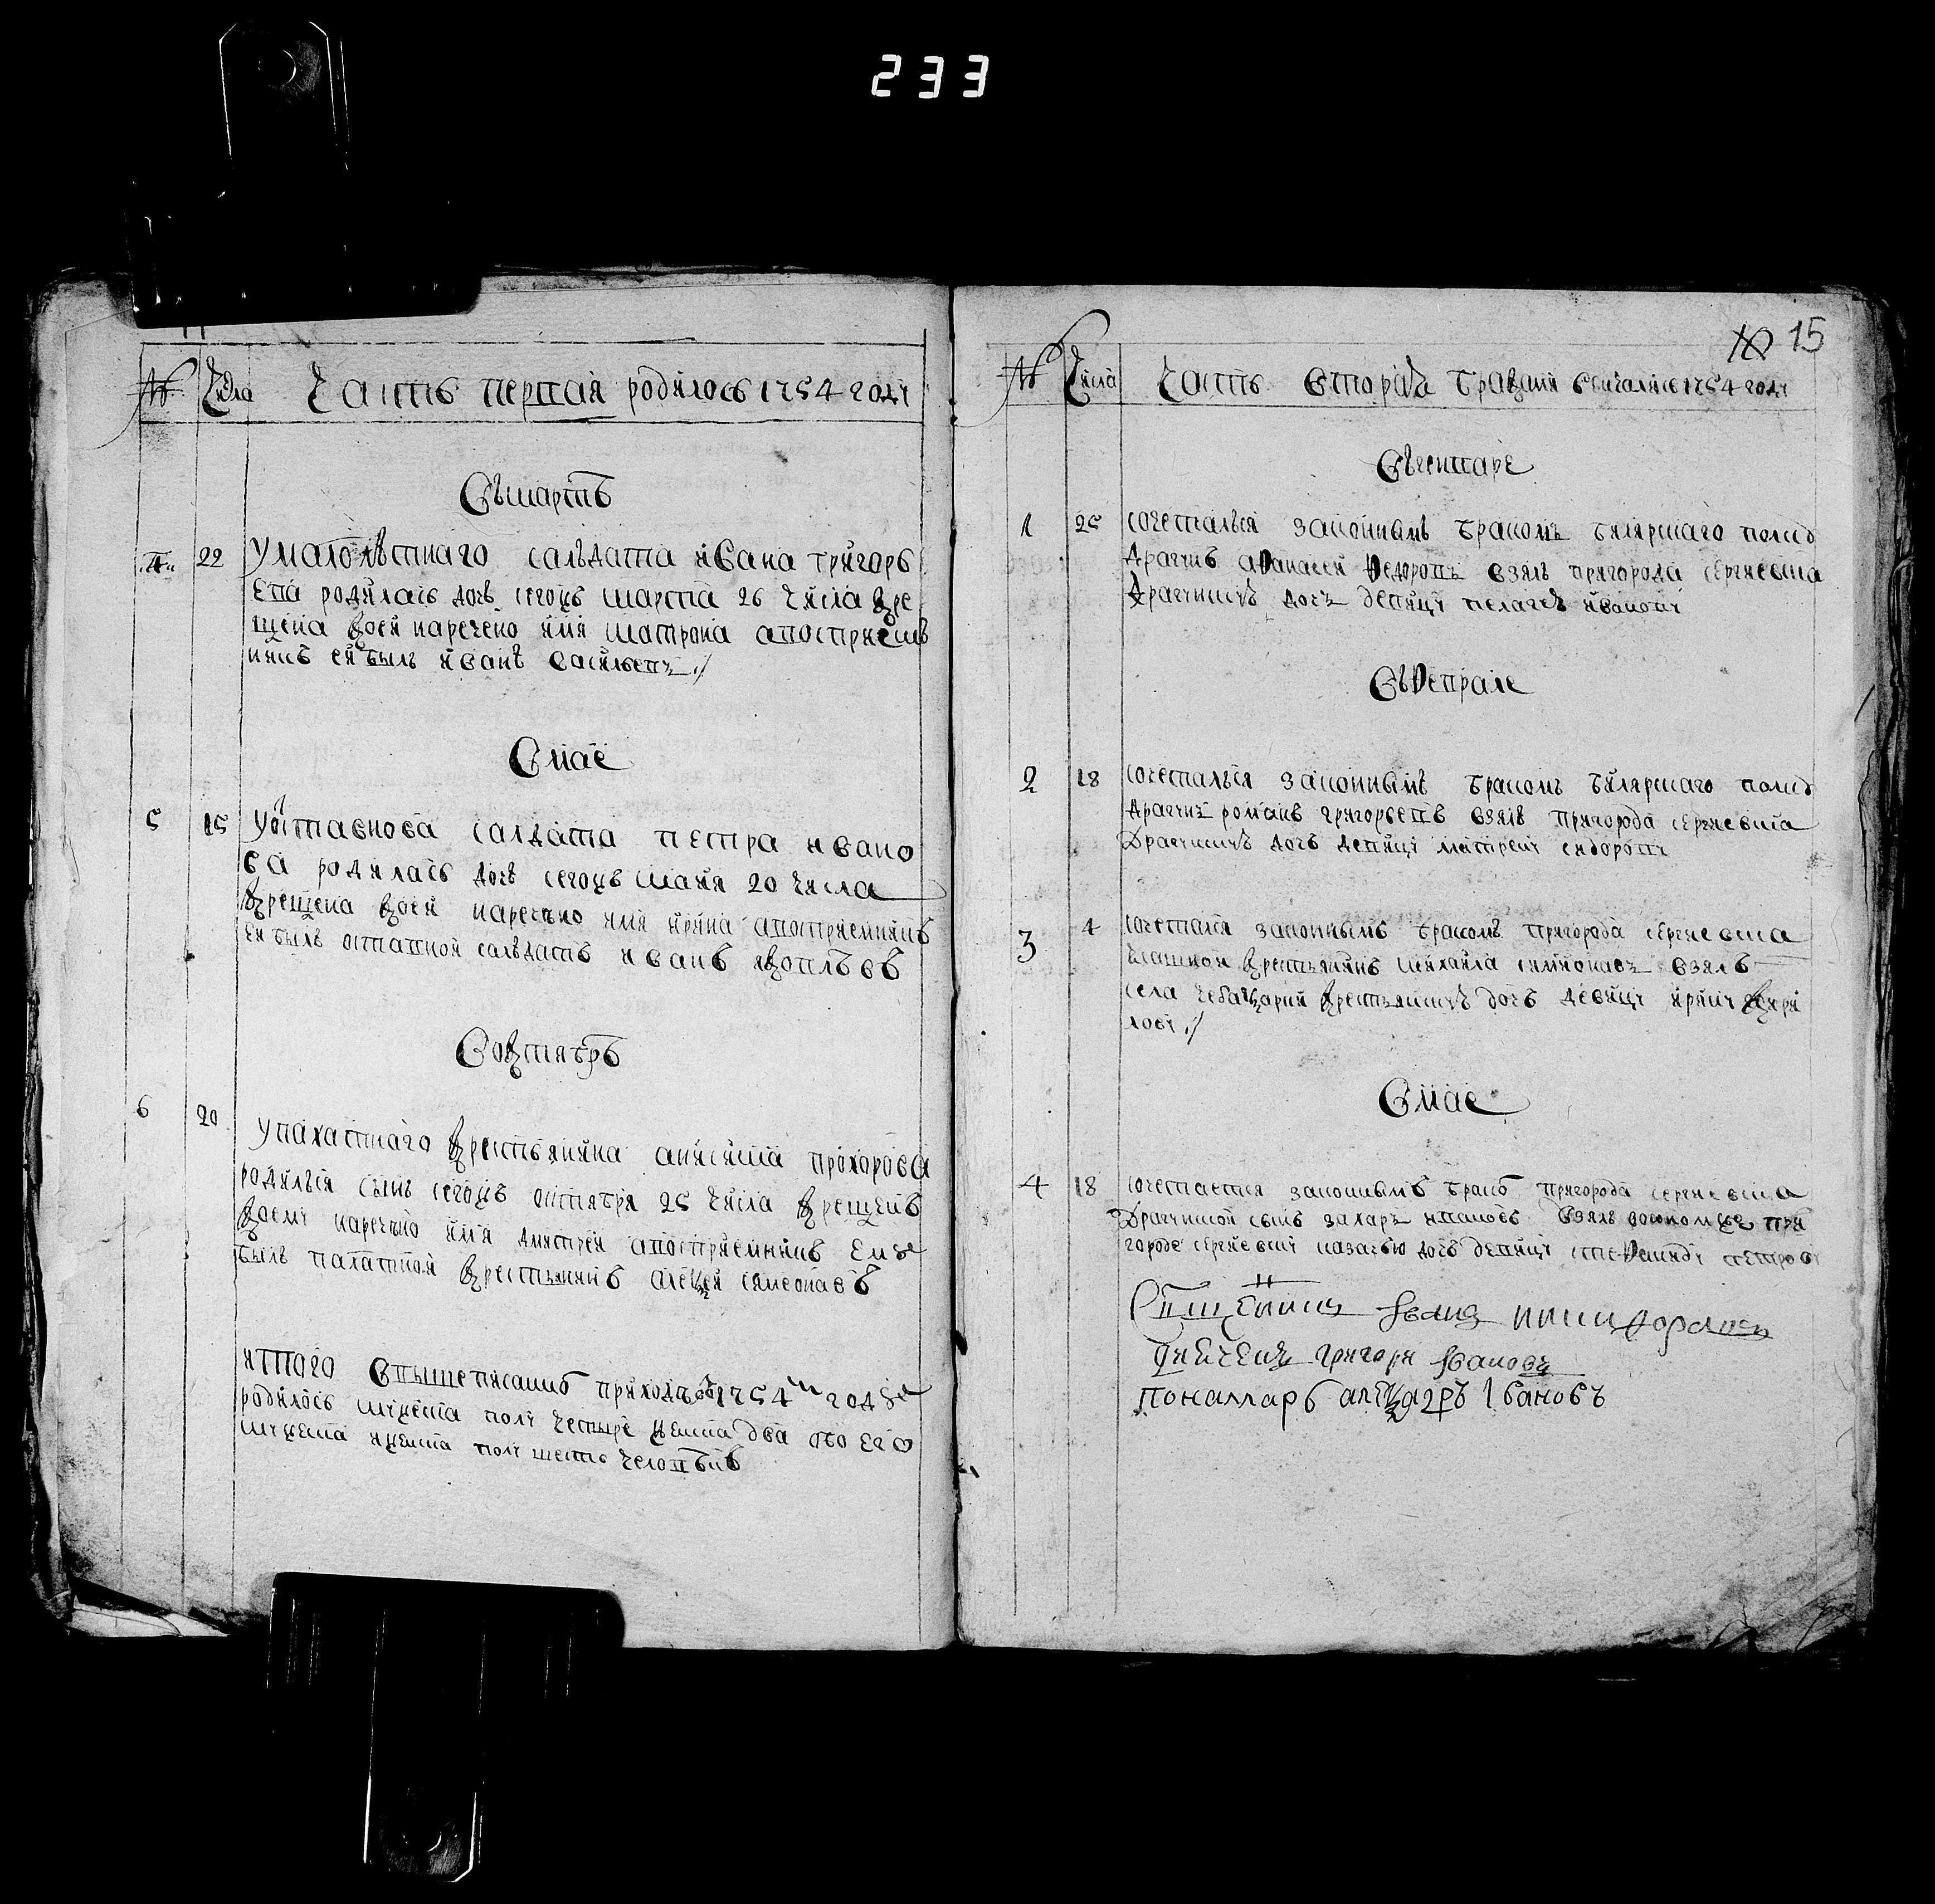 233
15
№ Числа Часть первая родилось 1754 году
Въ мартѣ
4 22 У малолѣтнаго салдата ивана григорь
ева родилась дочь сегожъ марта 26 числа кре
щена коей наречено имя матрона а восприем
никъ ей былъ иванъ васильевъ ./
В мае
5 15 У отставнова салдата петра ивано
ва родилась дочь сегожъ маия 20 числа
крещена коей наречено имя ирина а восприемникъ
ей былъ отставной салдатъ иванъ яковлевъ
В октябрѣ
6 20 У пахатнаго крестьянина анисима прохорова
родился сынъ сегожъ октября 25 числа крещенъ
коему наречено имя дмитрей а восприемникъ ему
былъ пахатной крестьянинъ алексей симеоновъ
итого В вышеписанномъ приходѣ въ 1754м году
родилось мужеска полу четыре женска два обоего
мужеска и женска полу шесть человѣкъ
№ Числа Часть вторая браками венчались 1754 году
Въ генваре
1 25 сочетался законнымъ бракомъ билярского полку
драгунъ афанасей федоровъ взялъ пригорода сергиевска
драгунскую дочь девицу пелагею иванову
Въ феврале
2 18 сочетался законнымъ бракомъ билярского полку
драгунъ романъ григорьевъ взялъ пригорода сергиевска
драгунскую дочь девицу матрену сидорову
3 4 сочетался законнымъ бракомъ пригорода сергиевска
крестьянинъ михаила симионовъ взялъ
села чебаксарки крестьянскую дочь девицу ирину кири
лову ./
В мае
4 18 сочетается законнымъ бракомъ пригорода сергиевска
драгунской сынъ захаръ ивановъ взялъ в оном же при
городе сергиевску казачью дочь девицу стефаниду петрову
Священникъ Иванъ никифоровъ
Дьячекъ григорей Ивановъ
понамарь алеѯандръ Iвановъ